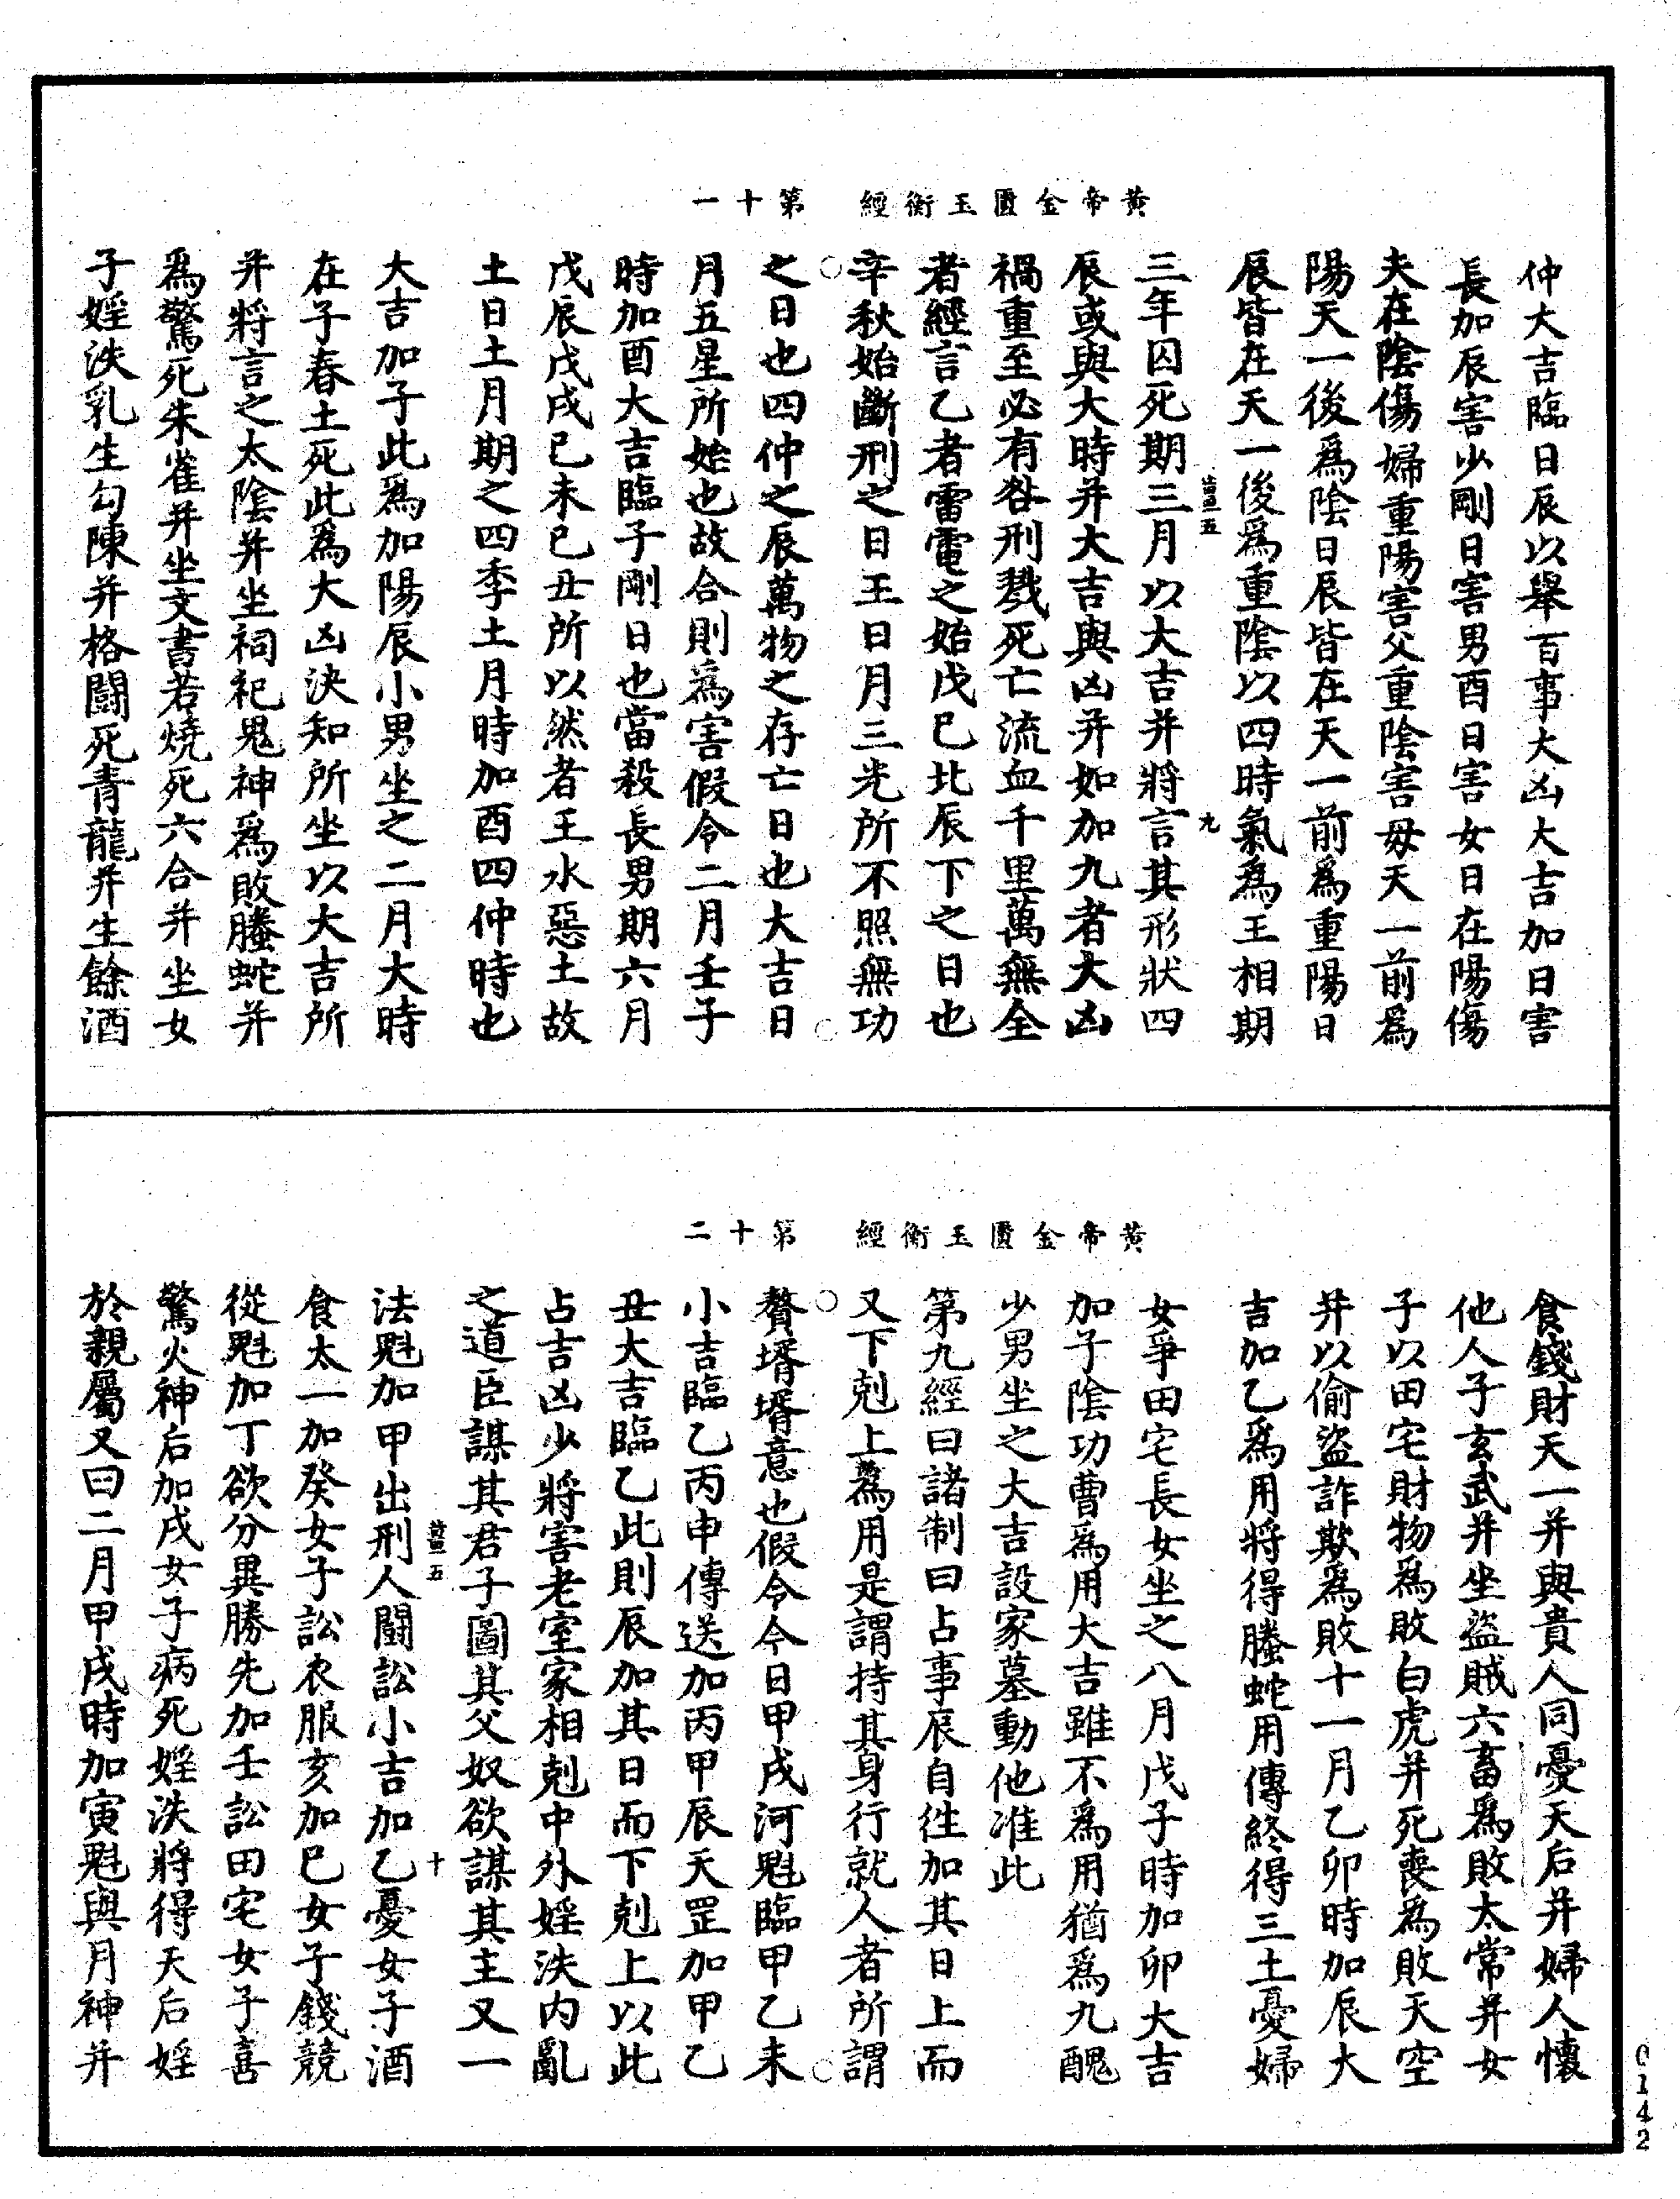 黃帝金匱玉衡經　第十一
仲大吉臨日辰以舉百事大凶大吉加日害
長加辰害少剛日害男酉日害女日在陽傷
夫在陰傷婦重陽害父重陰害母天一前為
陽天一後為陰日辰皆在天一前為重陽日
辰皆在天一後為重陰以四時氣為王相期
三年囚死期三月以大吉并將言其形狀四
辰或與大時并大吉與凶并如加九者大凶
禍重至必有咎刑戮死亡流血千里萬無全
者經言乙者雷電之始戊己北辰下之日也
辛秋始斷刑之日王日月三光所不照無功
之日也四仲之辰萬物之存亡日也大吉日
月五星所始也故合則為害假令二月壬子
時加酉大吉臨子剛日也當殺長男期六月
戊辰戊戌己未己丑所以然者王水惡土故
土日土月期之四季土月時加酉四仲時也
大吉加子此為加陽辰小男坐之二月大時
在子春土死此為大凶決知所坐以大吉所
并將言之太陰并坐祠祀鬼神為敗螣蛇并
為驚死朱雀并坐文書若燒死六合并坐女
子婬泆乳生勾陳并格鬪死青龍并生餘酒
九
黃帝金匱玉衡經　第十二
食錢財天一并與貴人同憂天后并婦人懷
他人子玄武并坐盜賊六畜為敗太常并女
子以田宅財物為敗白虎并死喪為敗天空
并以偷盜詐欺為敗十一月乙卯時加辰大
吉加乙為用將得螣蛇用傳終得三土憂婦
女爭田宅長女坐之八月戊子時加卯大吉
加子陰功曹為用大吉雖不為用猶為九醜
少男坐之大吉設家墓動他准此
第九經曰諸制曰占事辰自往加其日上而
又下剋上為用是謂持其身行就人者所謂
贅壻壻意也假令今日甲戌河魁臨甲乙未
小吉臨乙丙申傳送加丙甲辰天罡加甲乙
丑大吉臨乙此則辰加其日而下剋上以此
占吉凶少將害老室家相剋中外婬泆內亂
之道臣謀其君子圖其父奴欲謀其主又一
法魁加甲出刑人鬪訟小吉加乙憂女子酒
食太一加癸女子訟衣服亥加巳女子錢競
從魁加丁欲分異勝先加壬訟田宅女子喜
驚火神后加戌女子病死婬泆將得天后婬
於親屬又曰二月甲戌時加寅魁與月神并
十
0142